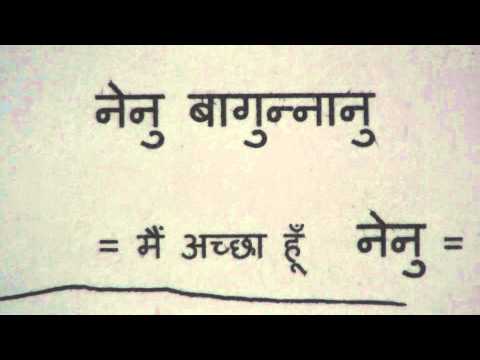 नेनु बागुन्नानु
= मैं अच्छा हूँ नेनु =